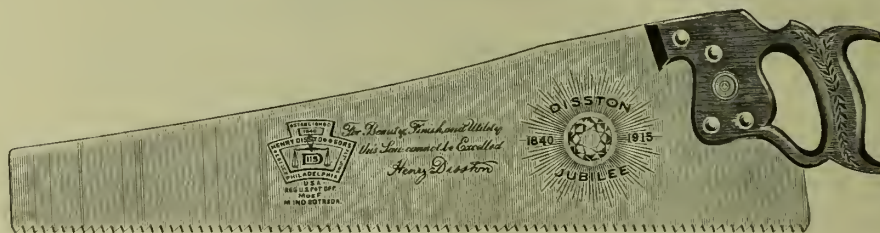 ESTABLISHED
1840
HENRY DISSTON & SONS
115
PHILADELPHIA
USA
REG.U.S.PAT.OFF.
For Beauty, Finish, and Utility,
this Saw cannot be Excelled
Henry Disston
DISSTON
1840 1915
JUBILEE